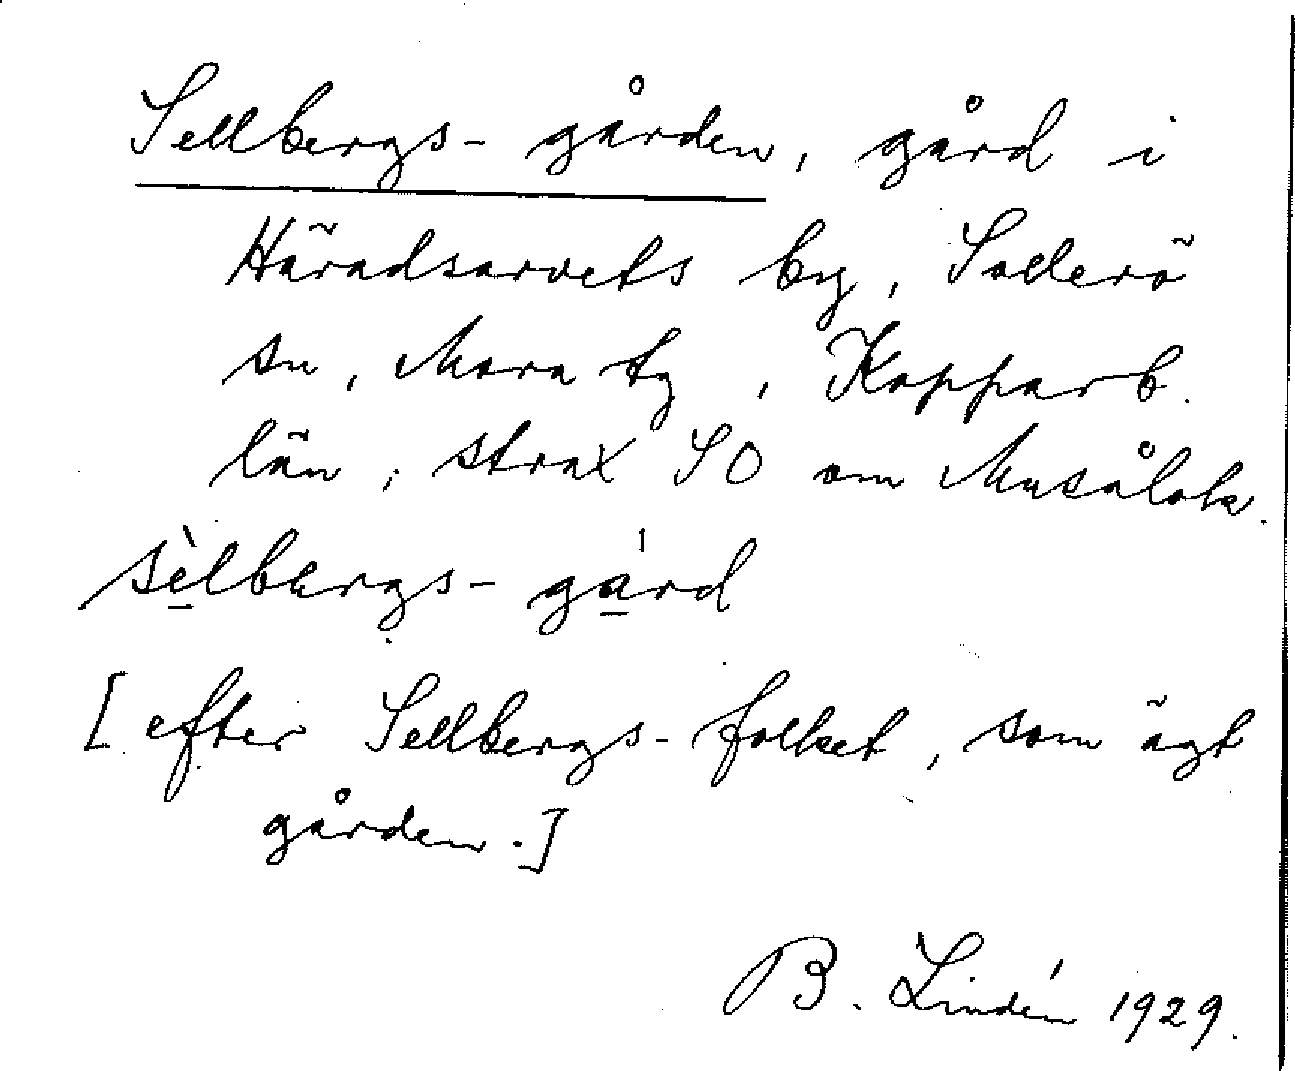 Sellbergs-gården, gård i
Häradsarvets by, Sollerö
sn, Mora tg, Kopparb.
län; strax SO om Musålok.
sèlbærgs-gá̱rd
[efter Sellbergs-folket, som ägt
gården.]
B. Lindén 1929.